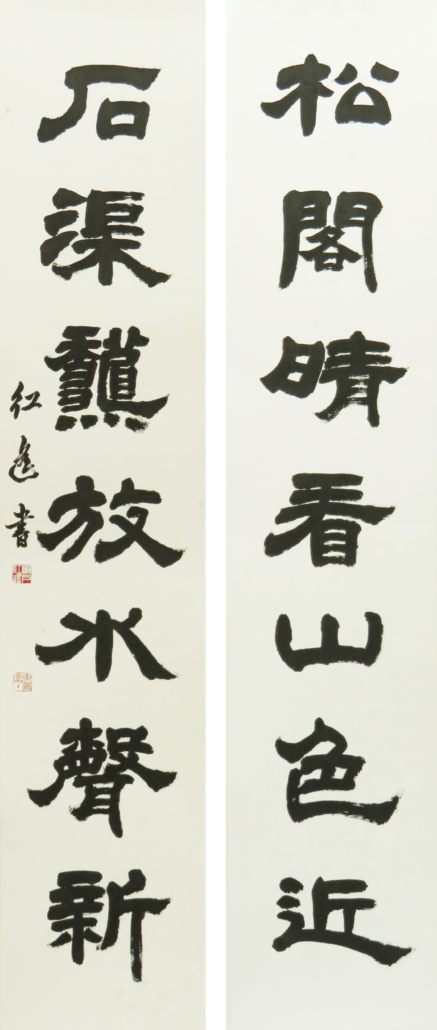 松閣晴看山色近
石渠秋放水聲新
红書